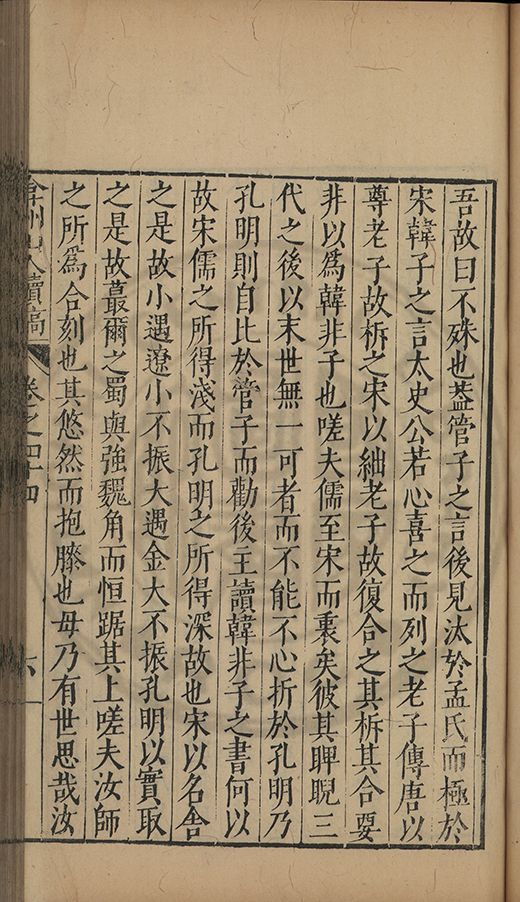 吾故曰不殊也葢管子之言後見汰於孟氏而極於
宋韓子之言太史公若心喜之而列之老子傳唐以
尊老子故柝之宋以絀老子故復合之其柝其合要
非以爲韓非子也嗟夫儒至宋而衷矣彼其睥睨三
代之後以末世無一可者而不能不心折於孔明乃
孔明則自比於管子而勸後主讀韓非子之書何以
故宋儒之所得淺而孔明之所得深故也宋以名舍
之是故小遇遼小不振大遇金大不振孔明以實取
之是故蕞爾之蜀與強魏角而恒踞其上嗟夫汝師
之所爲合刻也其悠然而抱膝也毋乃有世思哉汝
弇州山人續稿 卷之四十四 六